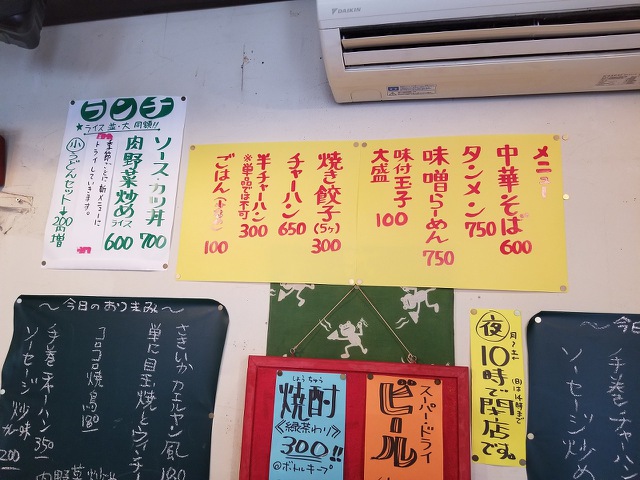 DAIKIN
ランチ
★ライス並・大同額!!
ソースカツ丼 700
肉野菜炒め ライス 600
季節ごとに新メニューに
トライしていきます。
小うどんセット→200円増
メニュー
中華そば 600
タンメン 750
味噌らーめん 750
味付玉子 100
大盛
焼き餃子(5ヶ) 300
チャーハン 650
半チャーハン 300
※単品では不可
ごはん 100
〜今日のおつまみ〜
さきいか カエルヤン風
単に目玉焼とウインナー
コロコロ焼鳥 180
チャーハン 350
ソーセージ炒め 200
肉野菜炒め
しょうちゅう
焼酎
《緑茶わり》
300!!
@ボトルキープ
スーパードライ
ビール
夜
10時で閉店です。
〜今日
チャーハン
ソーセージ炒め